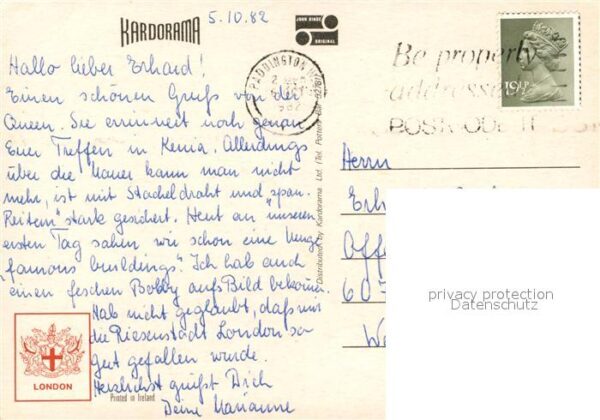 KARDORAMA
5.10.82
JOHN HINDE
ORIGINAL
Hallo lieber Erhard!
Einen schönen Gruß von der
Queen. Sie erinnert noch genau
Euer Treffen in Kenia. Allerdings
über die Mauer kann man nicht
mehr, ist mit Stacheldraht und "span.
Reitern" stark gesichert. Heut an unserem
ersten Tag sahen wir schon eine Menge
"famous buildings". Ich hab auch
einen feschen Bobby aufs Bild bekommen.
Hab nicht geglaubt, daß mir
die Riesenstadt London so
gut gefallen würde.
Herzlichst grüßt Dich
Deine Marianne
LONDON
Printed in Ireland
Distribution by Kardorama Ltd. (Tel. Potters Bar
PADDINGTON
Be properly
addressed
POSTCODE IT
19½P
Herrn
Erh
Off
607
privacy protection
Datenschutz